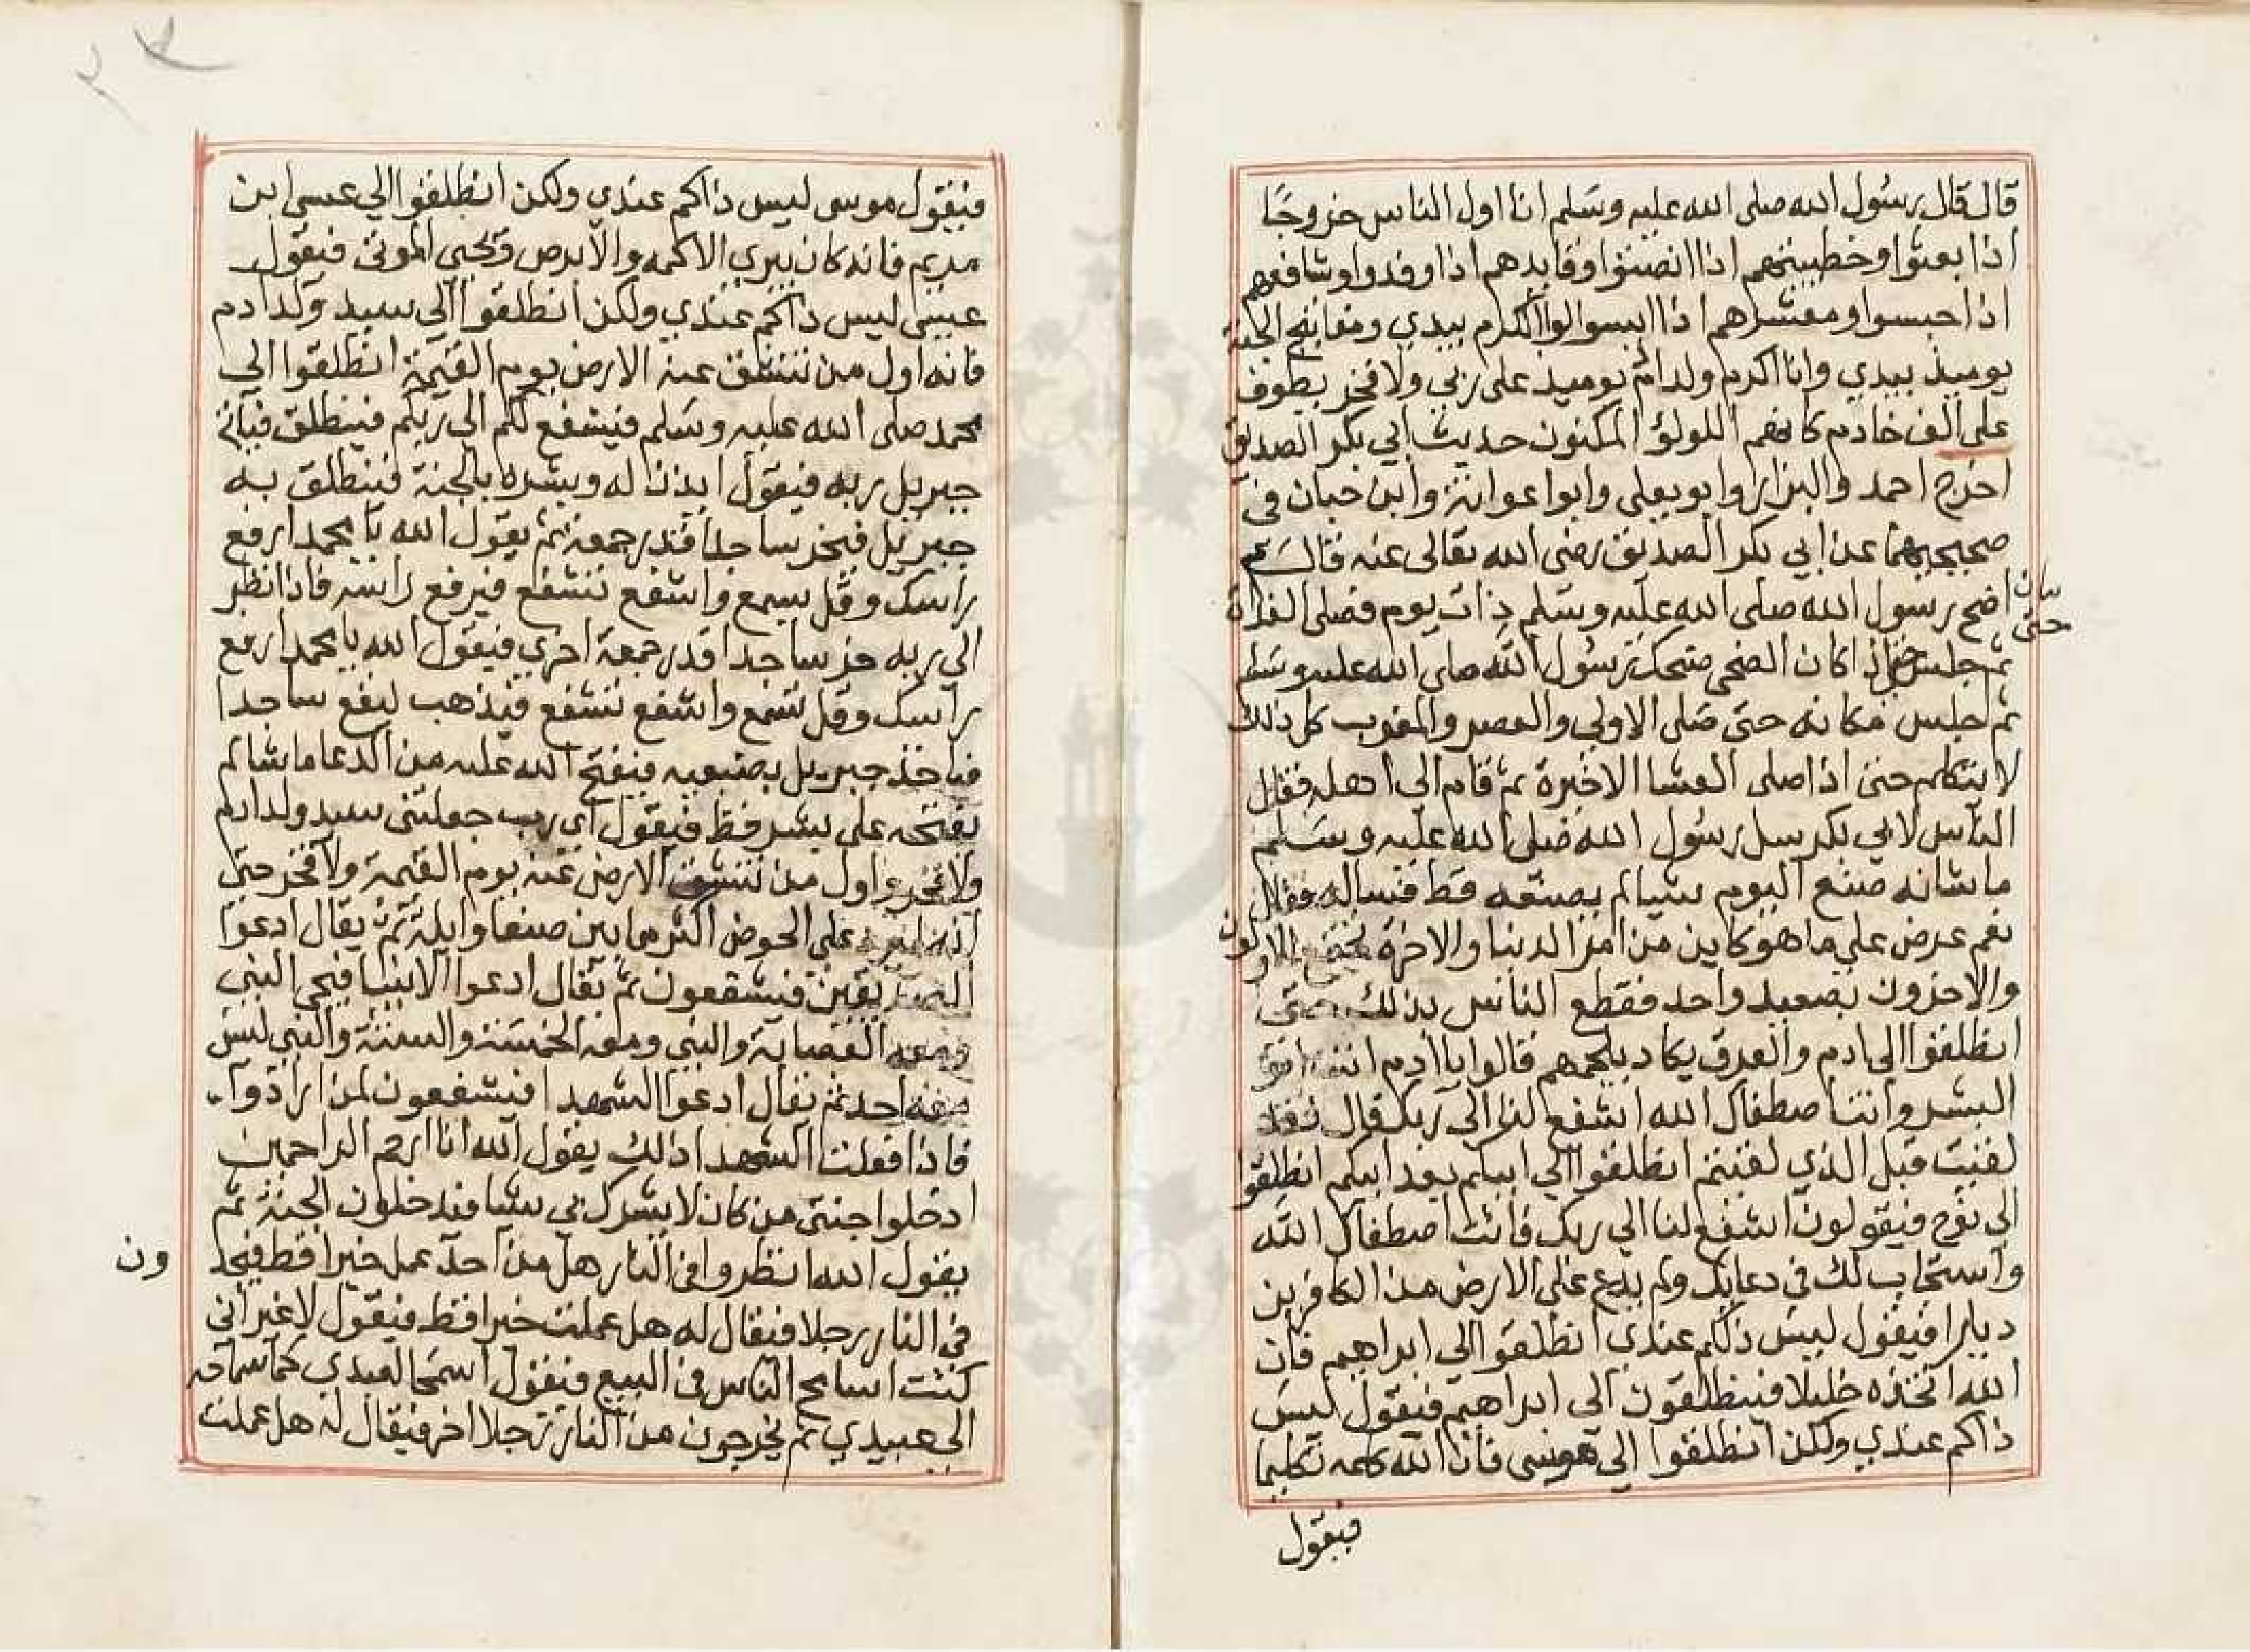 قال قال رسول الله صلى الله عليه وسلم انا اول الناس خروجا
اذا بعثوا وخطيبهم اذا انصتوا وقايدهم اذا وفدوا وشافعهم
اذا حبسوا ومبشرهم اذا ابيسوا لوا الكرم بيدي ومفاتيح الجنة
يوميذ بيدي وانا اكرم ولد ادم يوميذ على ربي ولا فخر يطوف
على الف خادم كانهم اللولؤ المكنون حديث ابي بكر الصديق
اخرج احمد والبزار وابو يعلى وابوا عوانة وابن حبان في
صحيحيهما عن ابي بكر الصديق رضي الله تعالى عنه قال
اضح رسول الله صلى الله عليه وسلم ذات يوم فصلى الغداة
ثم جلس حتى اذا كان الضحى ضحك رسول الله صلى الله عليه وسلم
ثم جلس مكانه حتى صلى الاولى والعصر والمغرب كل ذلك
لا يتكلم حتى اذا صلى العشا الاخيرة ثم قام الى اهله فقال
الناس لابي بكر سل رسول الله صلى الله عليه وسلم
ما شانه صنع اليوم شيا لم يصنعه قط فساله فقال
نعم عرض علي ما هو كاين من امر الدنيا والاخرة يجمع الاولون
والاخرون بصعيد واحد فقطع الناس بذلك حتى
انطلقوا الى ادم والعرق يكاد يلجمهم قالوا يا ادم انت ابو
البشر وانت اصطفاك الله اشفع لنا الى ربك قال لقد
لقيت قبل الذي لقيتم انطلقوا الى ابيكم بعد ابيكم انطلقوا
الى نوح فيقولون اشفع لنا الى ربك فانت اصطفاك الله
واستجاب لك في دعايك ولم يدع على الارض من الكافرين
ديارا فيقول ليس ذلكم عندي انطلقوا الى ابراهيم فان
الله اتخذه خليلا فينطلقون الى ابراهيم فيقول ليس
ذاكم عندي ولكن انطلقوا الى موسى فان الله كلمه تكليما
فيقول
فيقول موسى ليس ذاكم عندي ولكن انطلقوا الي عيسى ابن
مريم فانه كان يبري الاكمه والابرص ويحيي الموتى فيقول
عيسى ليس ذاكم عندي ولكن انطلقوا الى سيد ولد ادم
فانه اول من تنشق عنه الارض يوم القيمة انطلقوا الي
محمد صلى الله عليه وسلم فيشفع لكم الى ربكم فينطلق فياتي
جبريل ربه فيقول ايذن له وبشره بالجنة فينطلق به
جبريل فيخر ساجدا قدر جمعة ثم يقول الله يا محمد ارفع
راسك وقل يسمع واشفع تشفع فيرفع راسه فاذا نظر
الى ربه خر ساجدا قدر جمعة اخري فيقول الله يا محمد ارفع
راسك وقل تسمع واشفع تشفع فيذهب ليقع ساجدا
فياخذ جبريل بضبعيه فيفتح الله عليه من الدعا ما شا لم
يفتحه على بشر قط فيقول اي رب جعلتني سيد ولد ادم
ولا فخر واول من تنشق الارض عنه يوم القيمة ولا فخر حتى
انه ليرد على الحوض اكثر ما بين صنعا وايلة ثم يقال ادعوا
الصديقين فيشفعون ثم يقال ادعوا الانبيا فيجي النبي
ومعه العصابة والنبي ومعه الخمسة والستة والنبي ليس
معه احد ثم يقال ادعوا الشهدا فيشفعون لمن ارادوا
فاذا فعلت الشهدا ذلك يقول الله انا ارحم الراحمين
ادخلوا جنتي من كان لا يشرك بي شيا فيدخلون الجنة ثم
يقول الله انظروا في النار هل من احد عمل خيرا قط فيجد
ون
في النار رجلا فيقال له هل عملت خيرا قط فيقول لا غير اني
كنت اسامح الناس في البيع فيقول اسمحا لعبدي كما سماحه
الى عبيدي ثم يخرجون من النار رجلا اخر فيقال له هل عملت